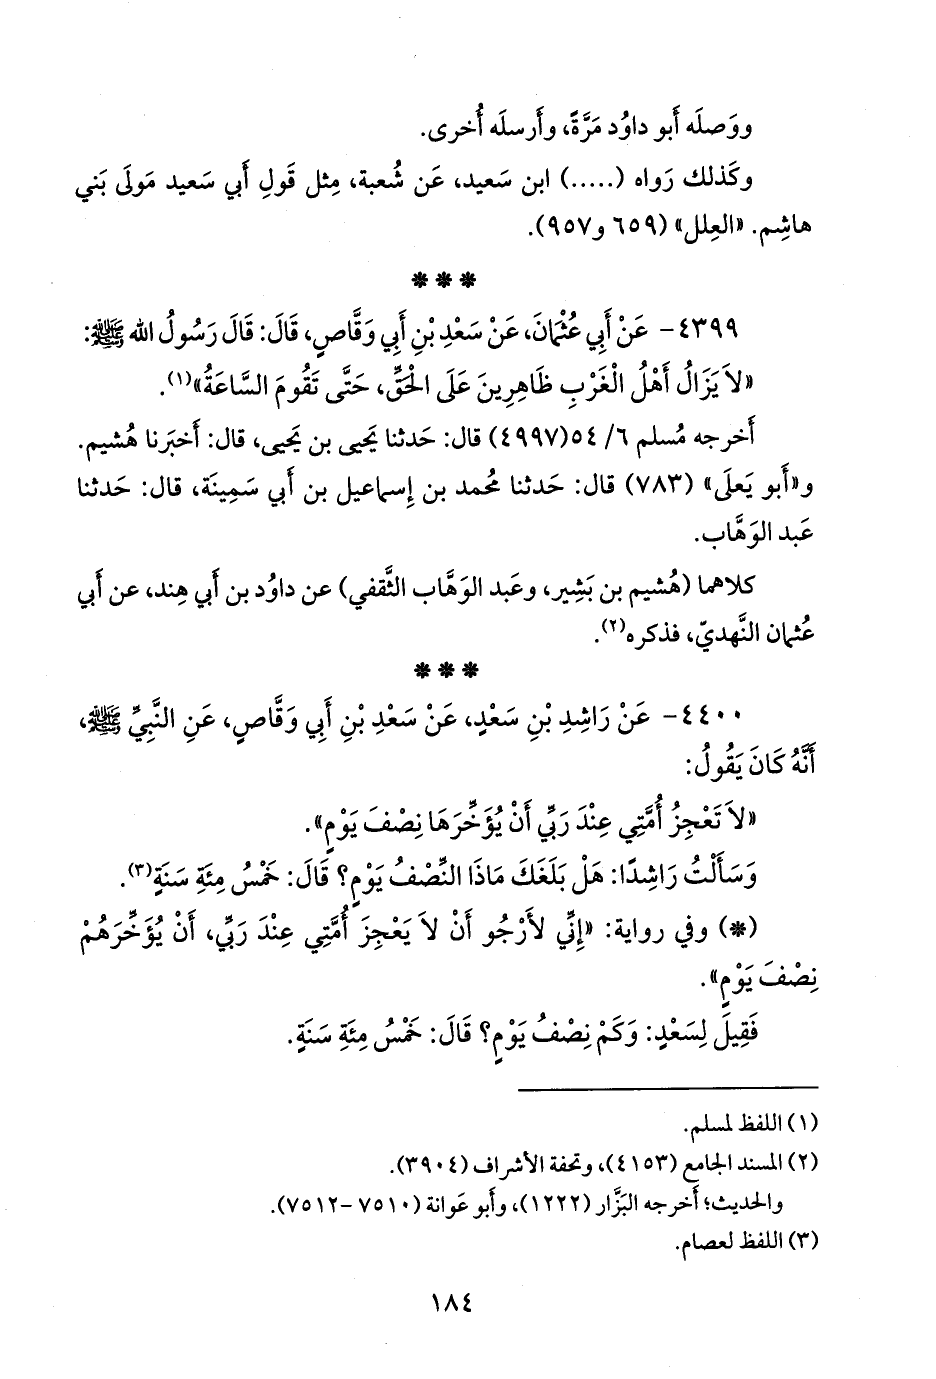 ووَصلَه أَبو داوُد مَرَّةً، وأَرسلَه أُخرى.
وكَذلك رَواه (.....) ابن سَعيد، عَن شُعبة، مِثل قَولِ أَبي سَعيد مَولَى بَني
هاشِم. «العِلل» (٦٥٩ و٩٥٧).
* * *
٤٣٩٩- عَنْ أَبِي عُثْمَانَ، عَنْ سَعْدِ بْنِ أَبِي وَقَّاصٍ، قَالَ: قَالَ رَسُولُ الله ﷺ:
«لاَ يَزَالُ أَهْلُ الْغَرْبِ ظَاهِرِينَ عَلَى الْحَقِّ، حَتَّى تَقُومَ السَّاعَةُ»(١).
أَخرجه مُسلم ٦/ ٥٤(٤٩٩٧) قال: حَدثنا يَحيى بن يَحيى، قال: أَخبَرنا هُشيم.
و«أَبو يَعلَى» (٧٨٣) قال: حَدثنا مُحمد بن إِسماعيل بن أَبي سَمِينَة، قال: حَدثنا
عَبد الوَهَّاب.
كلاهما (هُشيم بن بَشِير، وعَبد الوَهَّاب الثَّقفي) عن داوُد بن أَبي هِند، عن أَبي
عُثمان النَّهديّ، فذكره(٢).
* * *
٤٤٠٠- عَنْ رَاشِدِ بْنِ سَعْدٍ، عَنْ سَعْدِ بْنِ أَبِي وَقَّاصٍ، عَنِ النَّبِيِّ ﷺ،
أَنَّهُ كَانَ يَقُولُ:
«لاَ تَعْجِزُ أُمَّتِي عِنْدَ رَبِّي أَنْ يُؤَخِّرَهَا نِصْفَ يَوْمٍ».
وَسَأَلْتُ رَاشِدًا: هَلْ بَلَغَكَ مَاذَا النِّصْفُ يَوْمٍ؟ قَالَ: خَمْسُ مِئَةِ سَنَةٍ(٣).
(*) وفي رواية: «إِنِّي لأَرْجُو أَنْ لاَ يَعْجِزَ أُمَّتِي عِنْدَ رَبِّي، أَنْ يُؤَخِّرَهُمْ
نِصْفَ يَوْمٍ».
فَقِيلَ لِسَعْدٍ: وَكَمْ نِصْفُ يَوْمٍ؟ قَالَ: خَمْسُ مِئَةِ سَنَةٍ.
(١) اللفظ لمسلم.
(٢) المسند الجامع (٤١٥٣)، وتحفة الأشراف (٣٩٠٤).
والحديث؛ أَخرجه البَزَّار (١٢٢٢)، وأَبو عَوانة (٧٥١٠-٧٥١٢).
(٣) اللفظ لعصام.
١٨٤